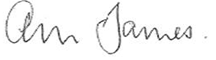 Ann James.